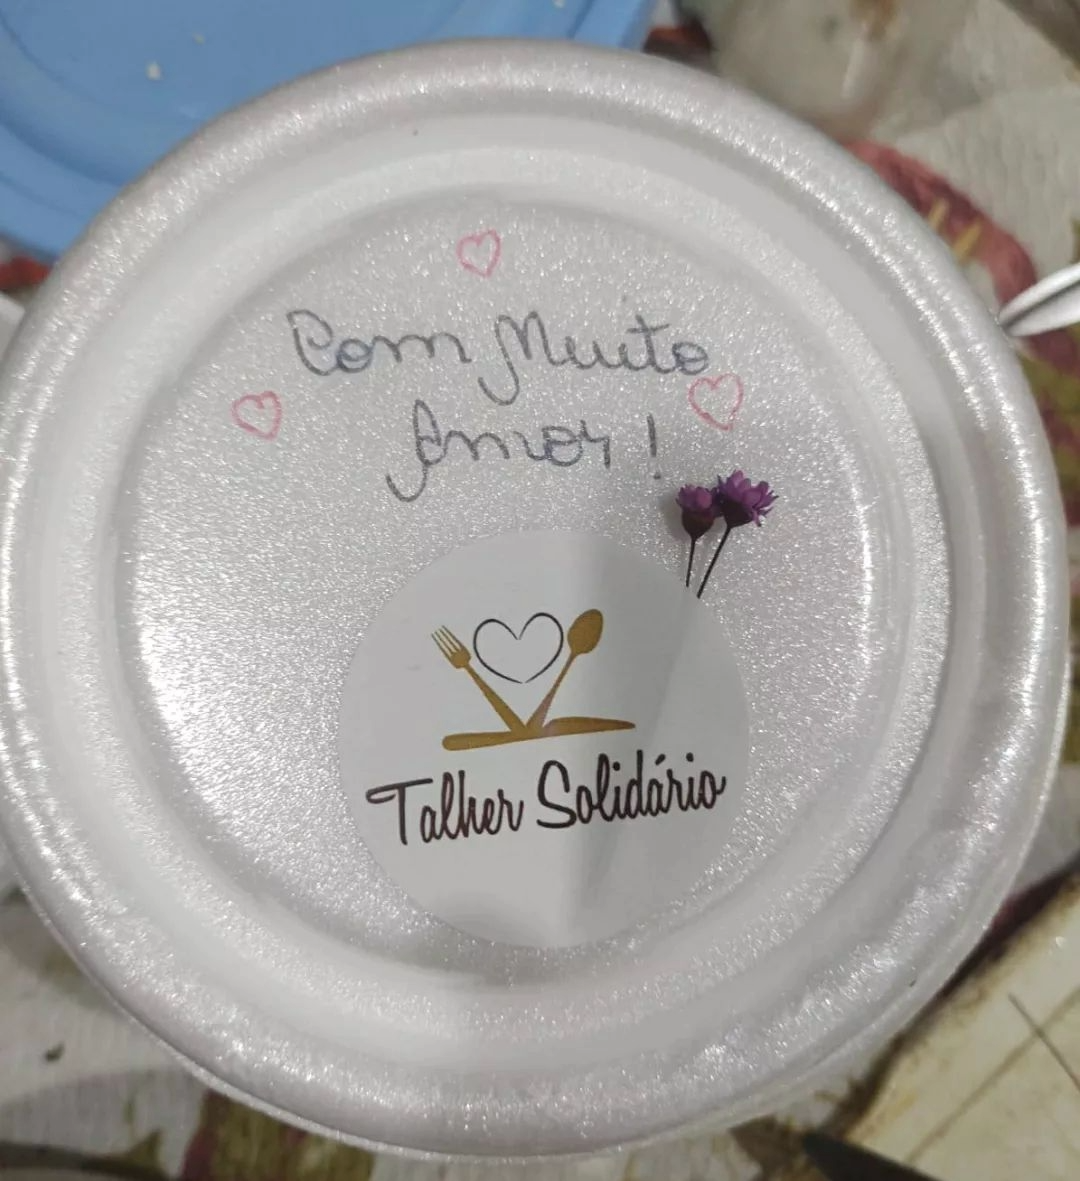 Com Muito
Amor!
Talher Solidário